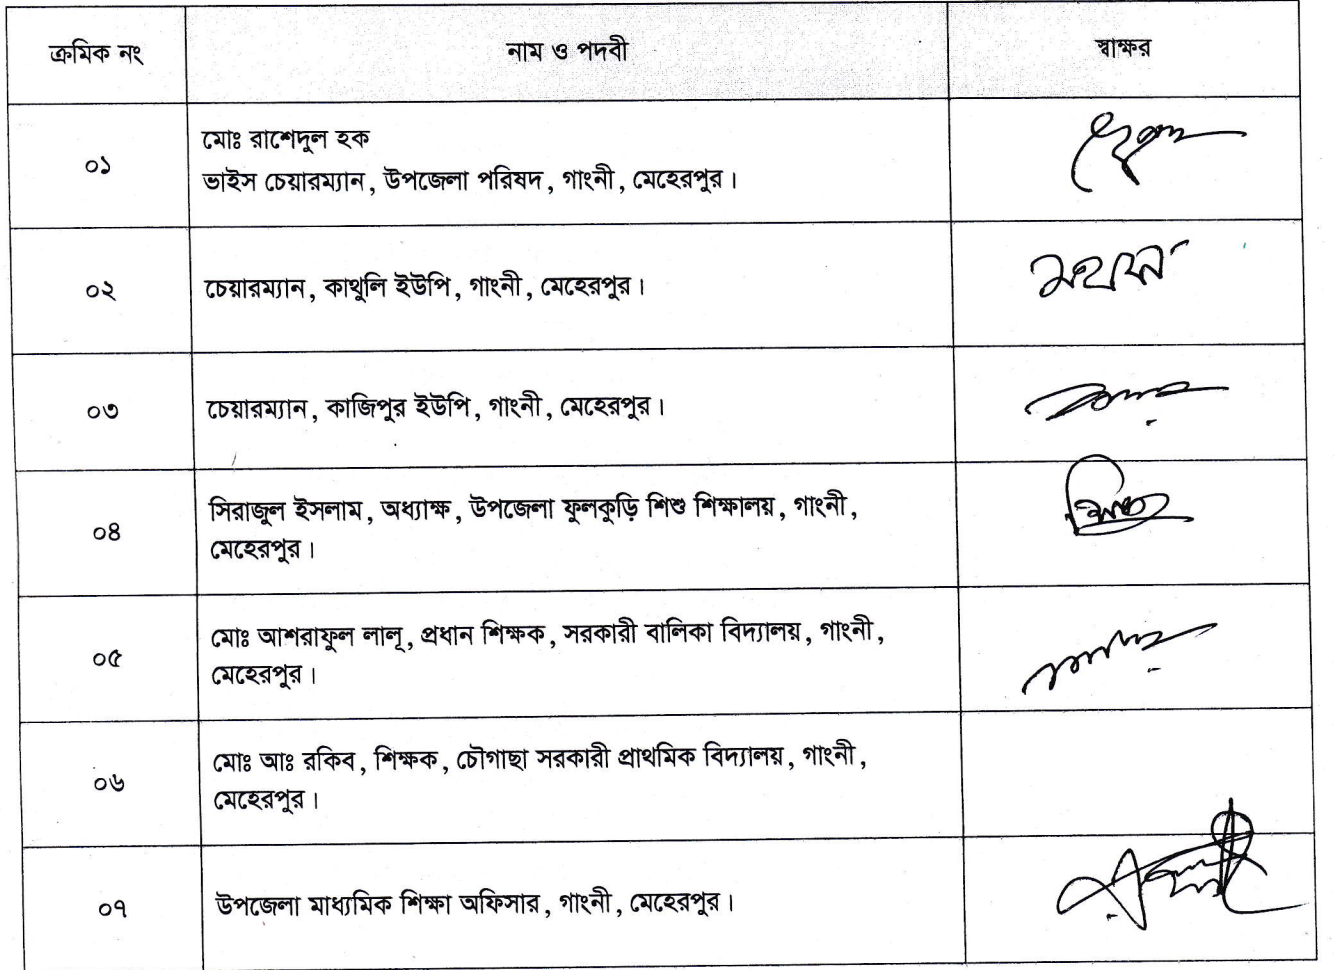 ক্রমিক নং নাম ও পদবী স্বাক্ষর
০১ মোঃ রাশেদুল হক
ভাইস চেয়ারম্যান, উপজেলা পরিষদ, গাংনী, মেহেরপুর।
০২ চেয়ারম্যান, কাথুলি ইউপি, গাংনী, মেহেরপুর।
০৩ চেয়ারম্যান, কাজিপুর ইউপি, গাংনী, মেহেরপুর।
০৪ সিরাজুল ইসলাম, অধ্যাক্ষ, উপজেলা ফুলকুড়ি শিশু শিক্ষালয়, গাংনী,
মেহেরপুর।
০৫ মোঃ আশরাফুল লালু, প্রধান শিক্ষক, সরকারী বালিকা বিদ্যালয়, গাংনী,
মেহেরপুর।
০৬ মোঃ আঃ রকিব, শিক্ষক, চৌগাছা সরকারী প্রাথমিক বিদ্যালয়, গাংনী,
মেহেরপুর।
০৭ উপজেলা মাধ্যমিক শিক্ষা অফিসার, গাংনী, মেহেরপুর।